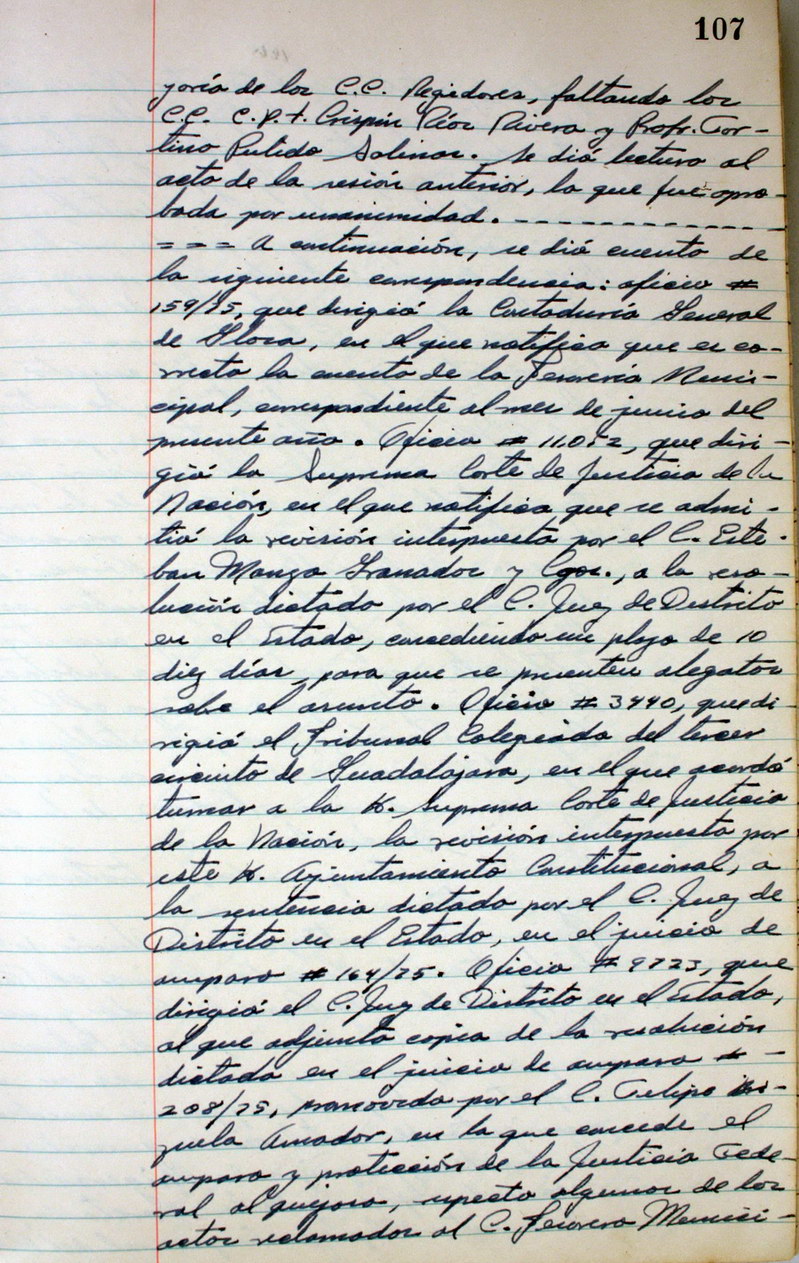 107
yoría de los C.C. Regidores, faltando los
C.C. C.P.t. Crispín Ríos Rivera y Profr. For-
tino Pulido Salinas. Se dió lectura al
acta de la sesión anterior, la que fue apro-
bada por unanimidad. - - - - - - - - - - - -
= = = A continuación, se dió cuenta de
la siguiente correspondencia: oficio #
159/75, que dirigió la Contaduría General
de Glosa, en el que notifica que es co-
rrecta la cuenta de la Tesorería Muni-
cipal, correspondiente al mes de junio del
presente año. Oficio # 11.052, que diri-
gió la Suprema Corte de Justicia de la
Nación, en el que notifica que se admi-
tió la revisión interpuesta por el C. Este-
ban Manzo Granados y Cgos., a la reso-
lución dictada por el C. Juez de Distrito
en el Estado, concediendo un plazo de 10
diez días, para que se presenten alegatos
sobe el asunto. Oficio # 3440, que di-
rigió el Tribunal Colegiado del tercer
circuito de Guadalajara, en el que acordó
turnar a la H. Suprema Corte de Justicia
de la Nación, la revisión interpuesta por
este H. Ayuntamiento Constitucional, a
la sentencia dictada por el C. Juez de
Distrito en el Estado, en el juicio de
amparo # 164/75. Oficio # 9723, que
dirigió el C. Juez de Distrito en el Estado,
al que adjunta copia de la resolución
dictada en el juicio de amparo # -
208/75, promovido por el C. Felipe Bri-
zuela Amador, en la que concede el
amparo y protección de la Justicia Fede-
ral al quejoso, respecto algunos de los
actos reclamados al C. Tesorero Munici-